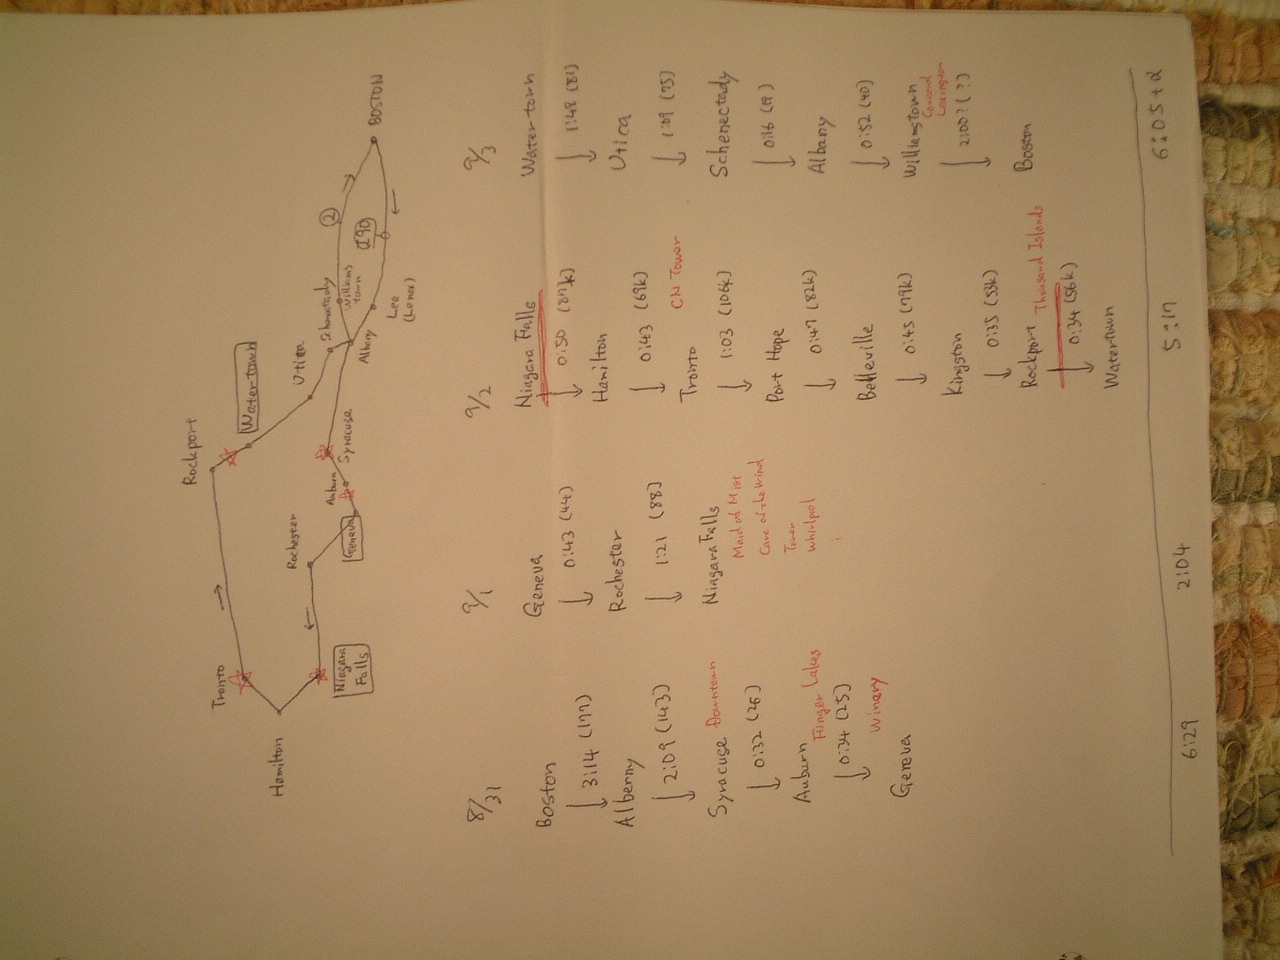 Rockport
Tronto
Watertown
Hamilton
Rochester
Utica
Schenectady
②
BOSTON
Niagara
Falls
Geneva
Auburn
Syracuse
Albany
Williams
town
I90
Lee
(Lenox)
8/31
Boston
↓ 3:14 (177)
Albenny
↓ 2:09 (143)
Syracuse Downtown
↓ 0:32 (26)
Auburn
Finger Lakes
↓ 0:34 (25)
Winery
Geneva
6:29
9/1
Geneva
↓ 0:43 (44)
Rochester
↓ 1:21 (88)
Niagara Falls
Maid of Mist
Cave of the Wind
Tower
Whirlpool
2:04
9/2
Niagara Falls
↓ 0:50 (87k)
Hamilton
↓ 0:43 (69k)
CN Tower
Tronto
↓ 1:03 (106k)
Port Hope
↓ 0:47 (82k)
Belleville
↓ 0:45 (79k)
Kingston
↓ 0:35 (53k)
Rockport Thousand Islands
↓ 0:34 (56k)
Watertown
5:17
9/3
Watertown
↓ 1:48 (81)
Utica
↓ 1:09 (75)
Schenectady
↓ 0:16 (19)
Albany
↓ 0:52 (40)
Williamstown
Concord
Lexington
↓ 2:00? (?)
Boston
6:05+α